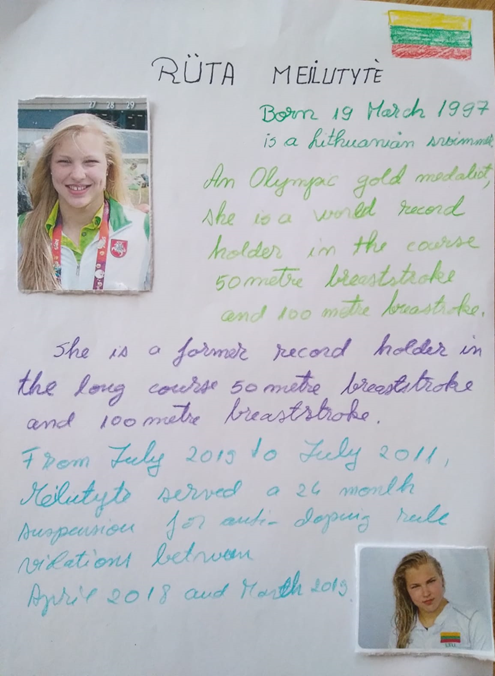 RÜTA MEILUTYTĖ
Born 19 March 1997
is a Lithuanian swimmer
An Olympic gold medalist,
she is a world record
holder in the course
50 metre breaststroke
and 100 metre breastroke.
She is a former record holder in
the long course 50 metre breaststroke
and 100 metre breaststroke.
From July 2019 to July 2011,
Meilutyte served a 24 month
suspension for anti-doping rule
violations between
April 2018 and March 2019.